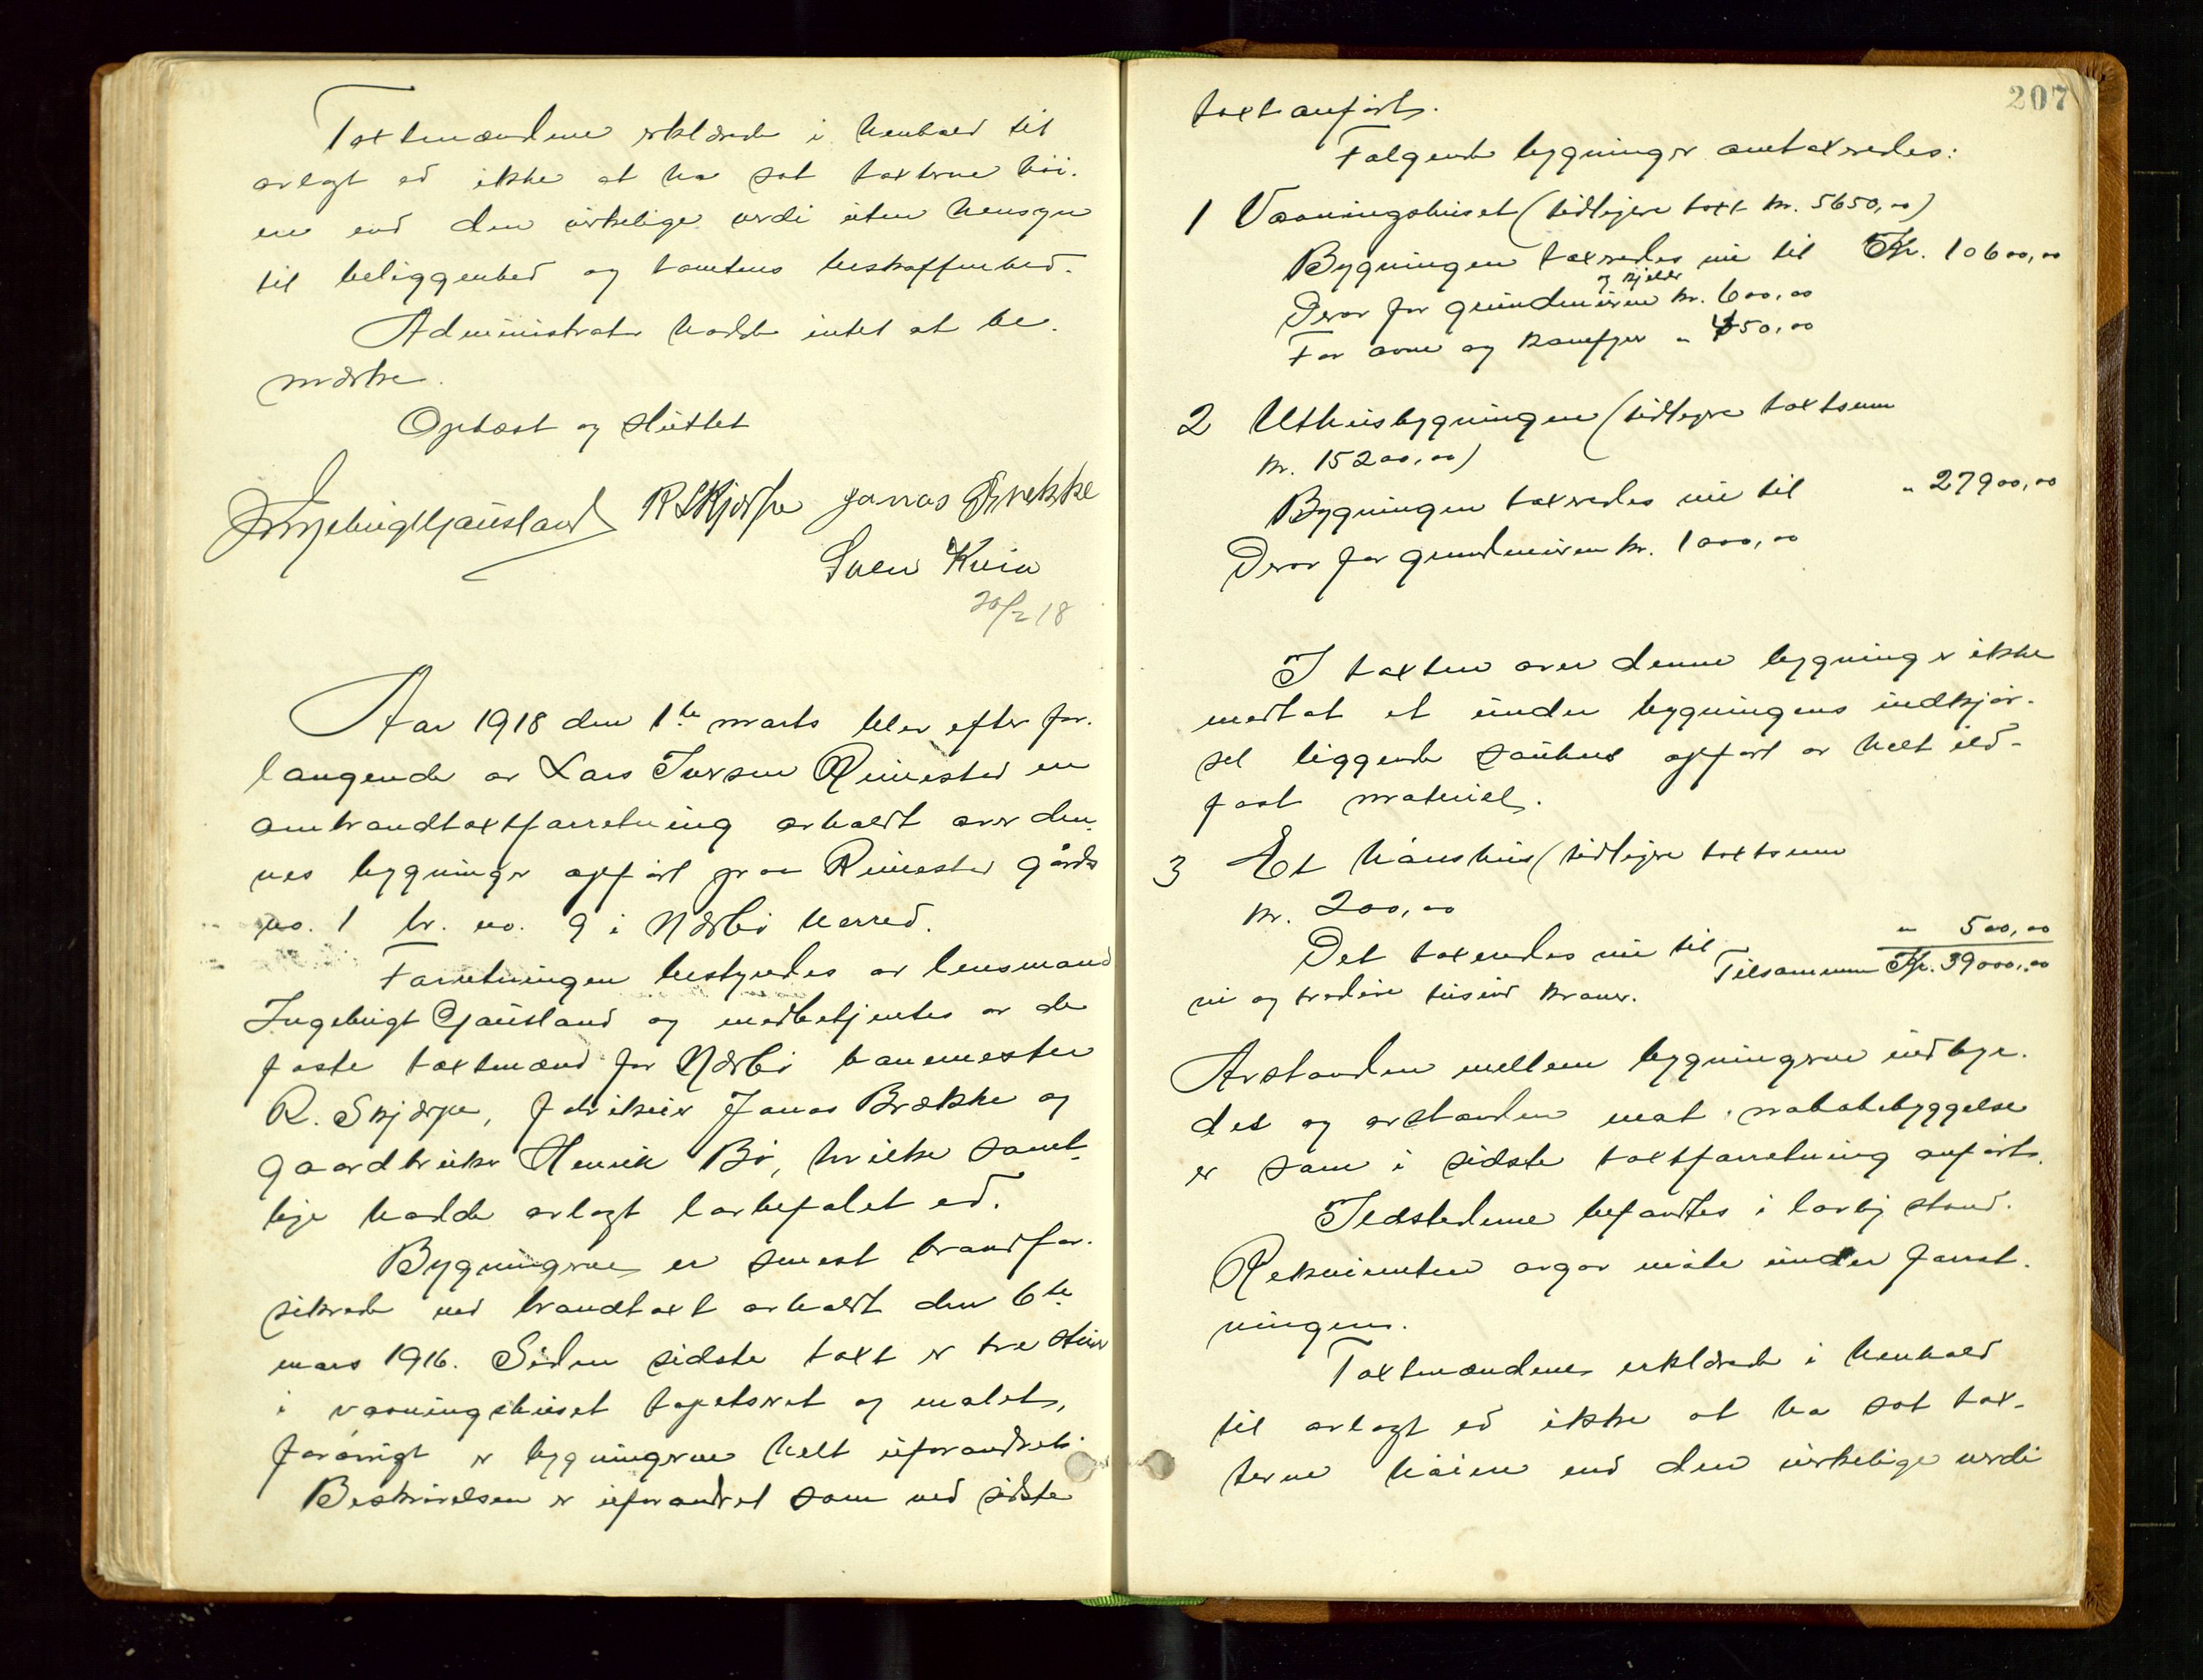 Taxtmændene erklærede i henhold til
avlagt ed ikke at ha sat taxterne høi-
ere end den virkelige verdi uten hensyn
til beliggenhed og tomtens beskaffenhed.
Administrator hadde intet at be-
mærke.
Oplæst og sluttet
Ingebrigt Gausland R Skjærpe Jonas Brekke
Sven Kvia
20/2 18
Aar 1918 den 1te marts blev efter for-
langende av Lars Iversen Rimestad en
ombrandtaxtforretning avholdt over den-
nes bygninger opført paa Rimestad gårds
no. 1 br. no. 9 i Nærbø herred.
Forretningen bestyredes av lensmand
Ingebrigt Gausland og medbetjentes av de
faste taxtmænd for Nærbø banemester
R. Skjærpe, fabrikeier Jonas Brække og
gaardbruker Henrik Bø, hvilke samt-
lige hadde avlagt lovbefalet ed.
Bygningerne er senest brandfor-
sikrede ved brandtaxt avholdt den 6te
mars 1916. Siden sidste taxt er tre stuer
i vaaningshuset tapetseret og malet,
forøvrigt er bygningerne helt uforandret.
Beskrivelsen er uforandret som ved sidste
207
taxt anført.
Følgende bygninger omtaxeredes:
1 Vaaningshuset (tidligere taxt kr. 5650,00)
Bygningen taxeredes nu til Kr. 10600,00
og kjelder
Derav for grundmuren kr. 600,00
For ovne og komfyr " 450,00
2 Uthusbygningen (tidligere taxtsum
kr. 15200,00)
Bygningen taxeredes nu til " 27900,00
Derav for grundmuren kr. 1000,00
I taxten over denne bygning er ikke
medtat et under bygningens indkjør-
sel liggende sauhus opført av helt ild-
fast materiel.
3 Et hønshus (tidligere taxtsum
kr. 200,00
Det taxeredes nu til " 500,00
Tilsammen Kr. 39000,00
ni og tredive tusind kroner.
Avstanden mellem bygningerne indbyr-
des og avstanden mot nabobebyggelse
er som i sidste taxtforretning anført.
Ildstederne befandtes i lovlig stand.
Rekvirenten avgav møte under forret-
ningen.
Taxtmændene erklærede i henhold
til avlagt ed ikke at ha sat tax-
terne høiere end den virkelige verdi